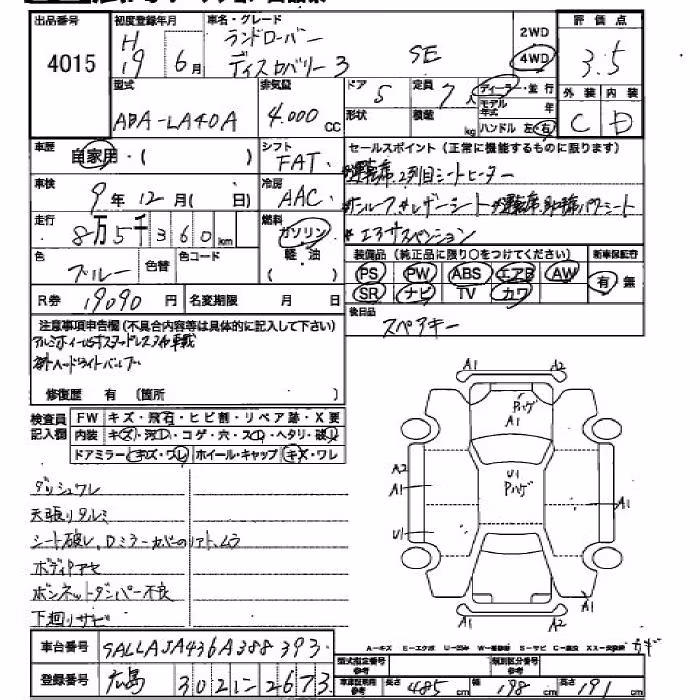 出品番号 初度登録年月 車名・グレード 評価点
4015 H19 6月 ランドローバー ディスカバリー3 SE 2WD 4WD 3.5
型式 排気量 ドア 5 定員 7人 ディーラー・並行 外装 内装
ABA-LA40A 4.000 CC 形状 積載 kg モデル年式 年 ハンドル 左・右 C D
車歴 自家用・( ) シフト FAT セールスポイント (正常に機能するものに限ります)
車検 9年12月( 日) 冷房 AAC *運転席、2列目シートヒーター
走行 8万5千360km 燃料 ガソリン 軽油 ( ) *サンルーフ *レザーシート *運転席、助手席パワーシート
*エアサスペンション
色 ブルー 色替 色コード 装備品 (純正品に限り○をつけてください) 新車保証書
PS PW ABS エアB AW 有・無
SR ナビ TV カワ
R券 19090円 名変期限 月 日 後日品 スペアキー
注意事項申告欄(不具合内容等は具体的に記入して下さい)
修復歴 有 (箇所 )
検査員記入欄 FW キズ・飛石・ヒビ割・リペア跡・X要
内装 キズ・汚レ・コゲ・穴・スレ・ヘタリ・破レ
ドアミラー キズ・ワレ ホイール・キャップ キズ・ワレ
ダッシュワレ
天張りタルミ
シート破レ、Dミラーカバーのリアト、ムラ
ボディアセ
ボンネットダンパー不良
下廻りサビ
A1 A2
Pハゲ
A1
A2
A1
U1
Pハゲ
A1
U1
A1 A2
A1
車台番号 SALLAJA436A388393
A-キズ E-エクボ U-凹み W-補修跡 S-サビ C-腐食 X-交換跡
登録番号 広島 302 に 2673
型式指定番号参考 類別区分番号参考
車庫証明用参考 長さ 485cm 幅 198cm 高さ 191cm